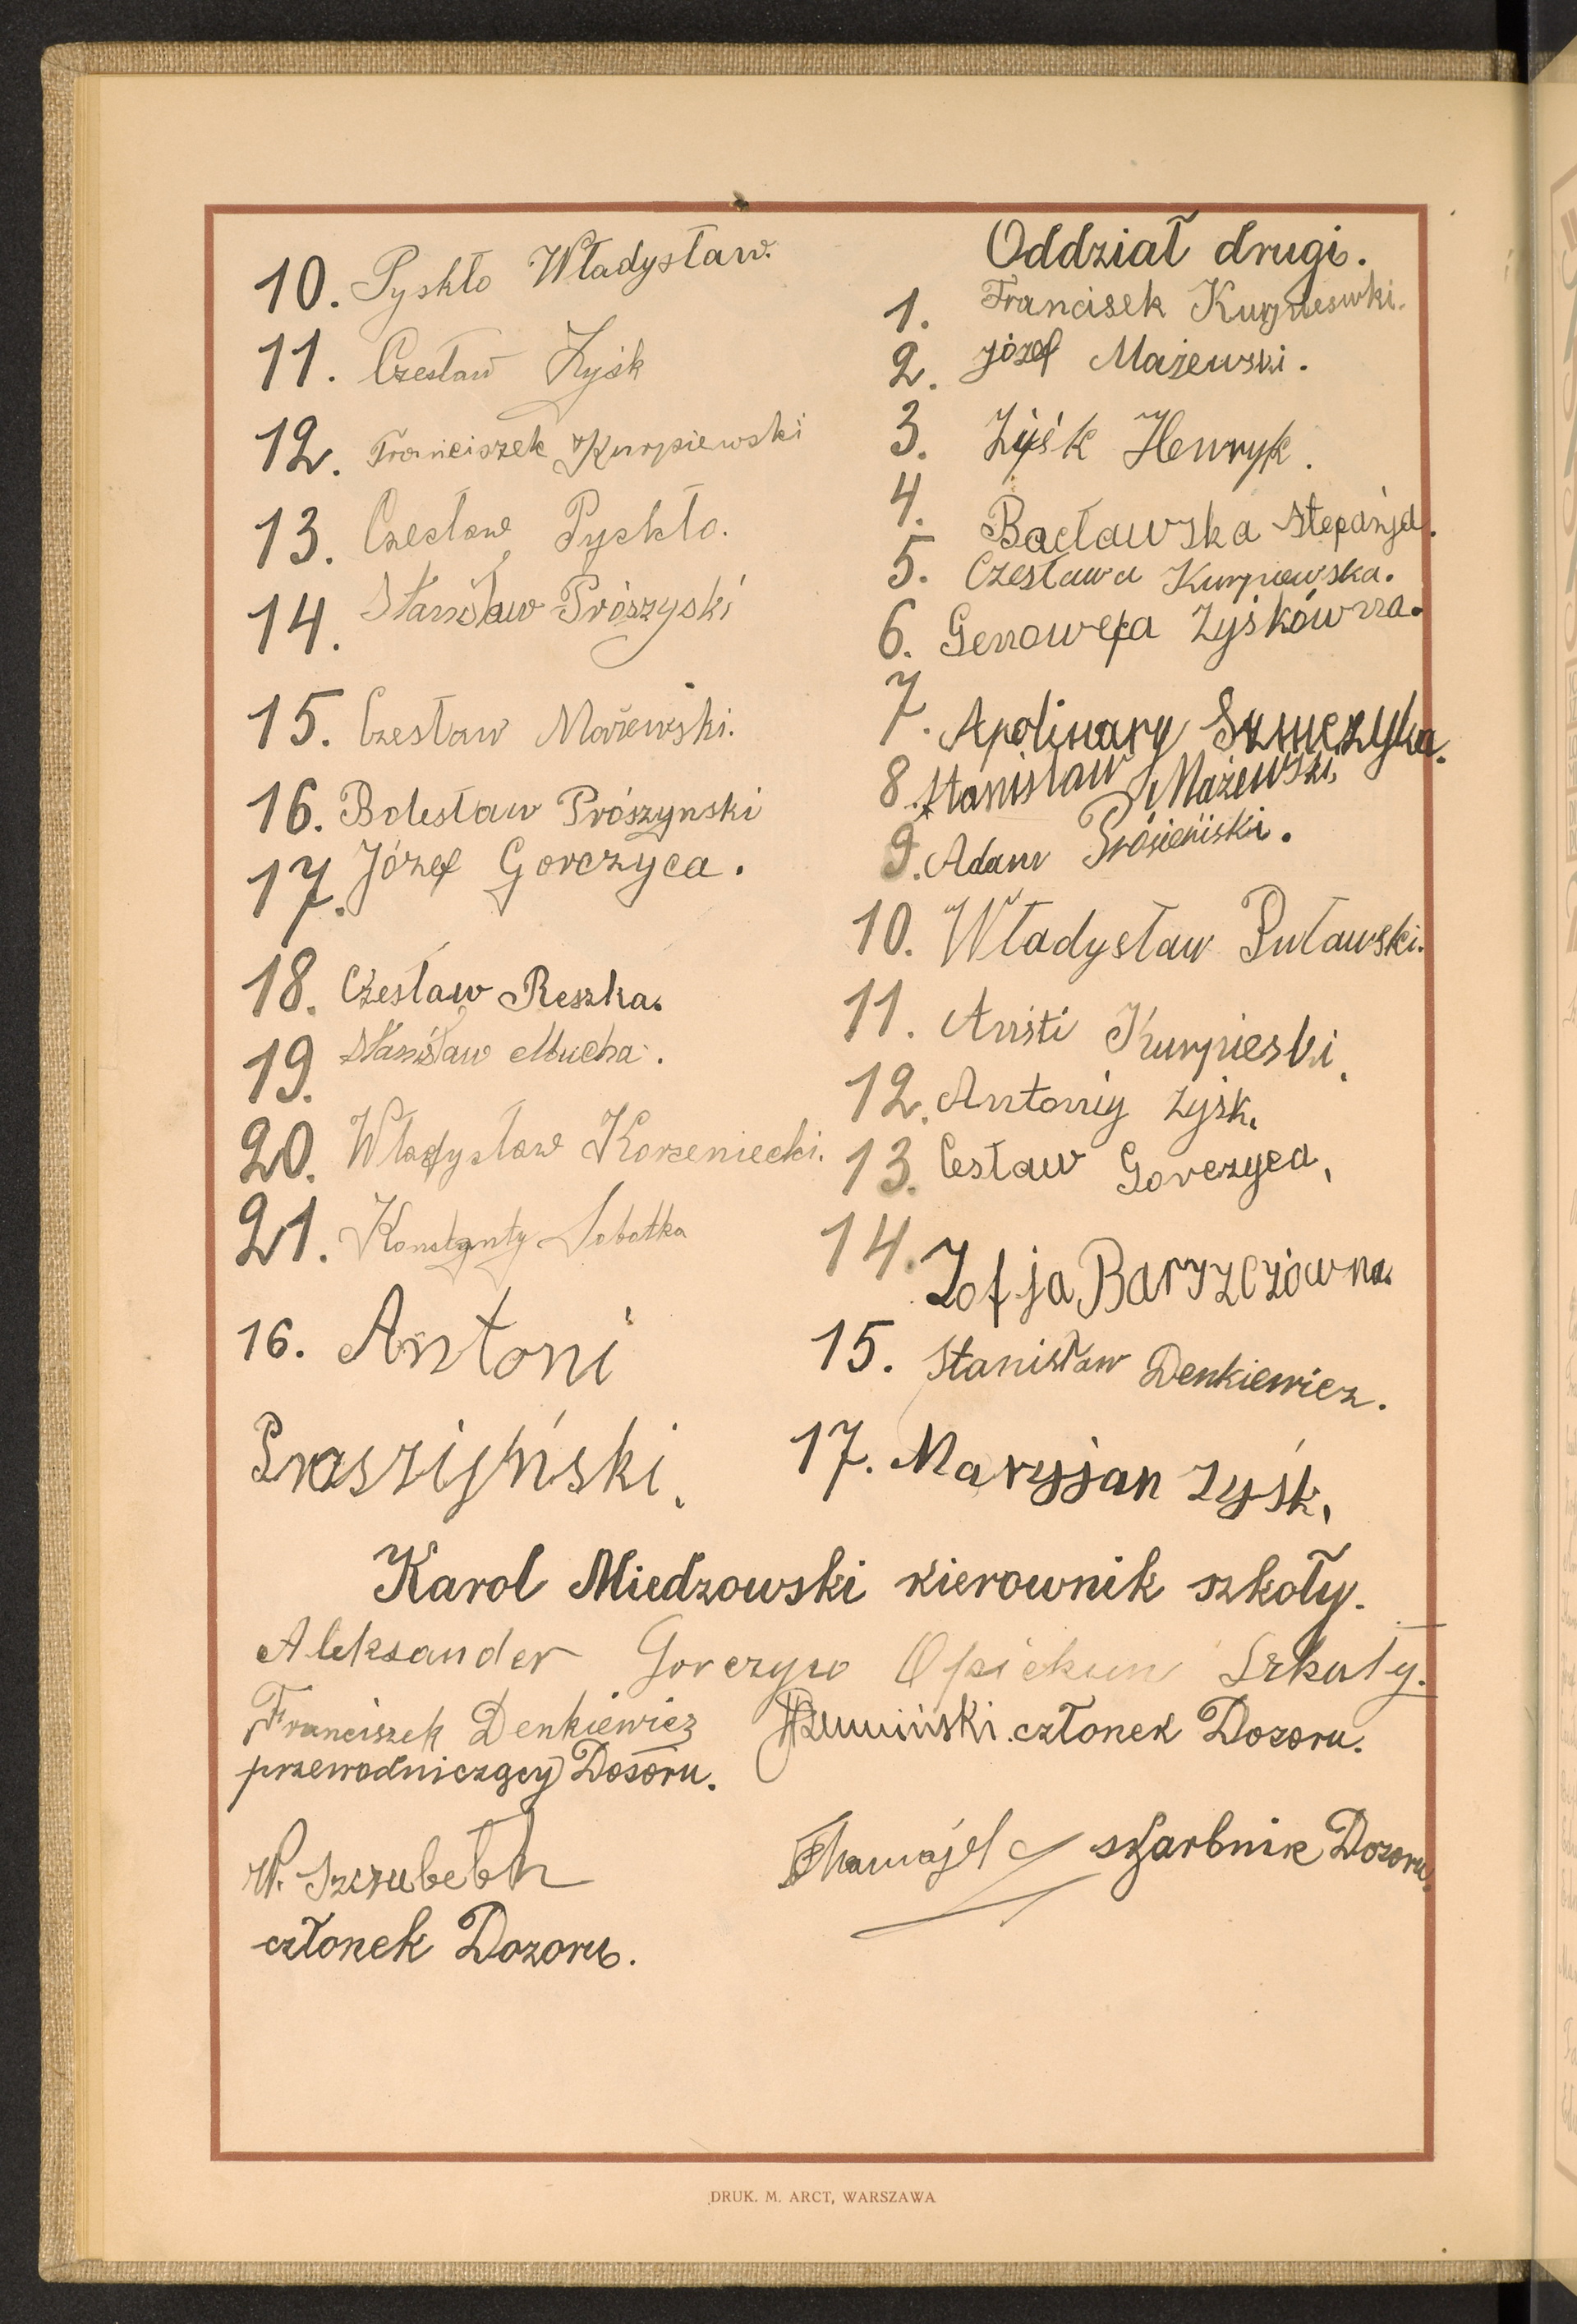 10. Pyskło Władysław.
11. Czesław Zyśk
12. Franciszek Kurpiewski
13. Czesław Pyskło.
14. Stanisław Prószyski
15. Czesław Mażewski.
16. Bolesław Prószynski
17. Józef Gorczyca.
18. Czesław Reszka.
19. Stanisław Mucha.
20. Władysław Korzeniecki.
21. Konstanty Sobotka
16. Antoni
Praszijński.
Oddział drugi.
1. Francisek Kurpieswki.
2. józef Mażewski.
3. Zyśk Henryk.
4. Bacławska Stefańja.
5. Czesława Kurpiewska.
6. Genowefa Zyśkówna.
7. Apolinary
8. Stanisław Mażewski.
9. Adam
10. Władysław Puławski.
11. Kurpieski.
12. Antoniy Zyśk.
13. Cesław Gorczyca.
14. Zofja
15. Stanisław Denkiewicz.
17. Maryjan Zyśk.
Karol Miedzowski kierownik szkoły.
Aleksander Opiekun Szkuły.
Franciszek Denkiewicz
przewodniczący Dozoru.
członek Dozoru.
skarbnik Dozoru.
W.
członek Dozoru.
DRUK. M. ARCT, WARSZAWA